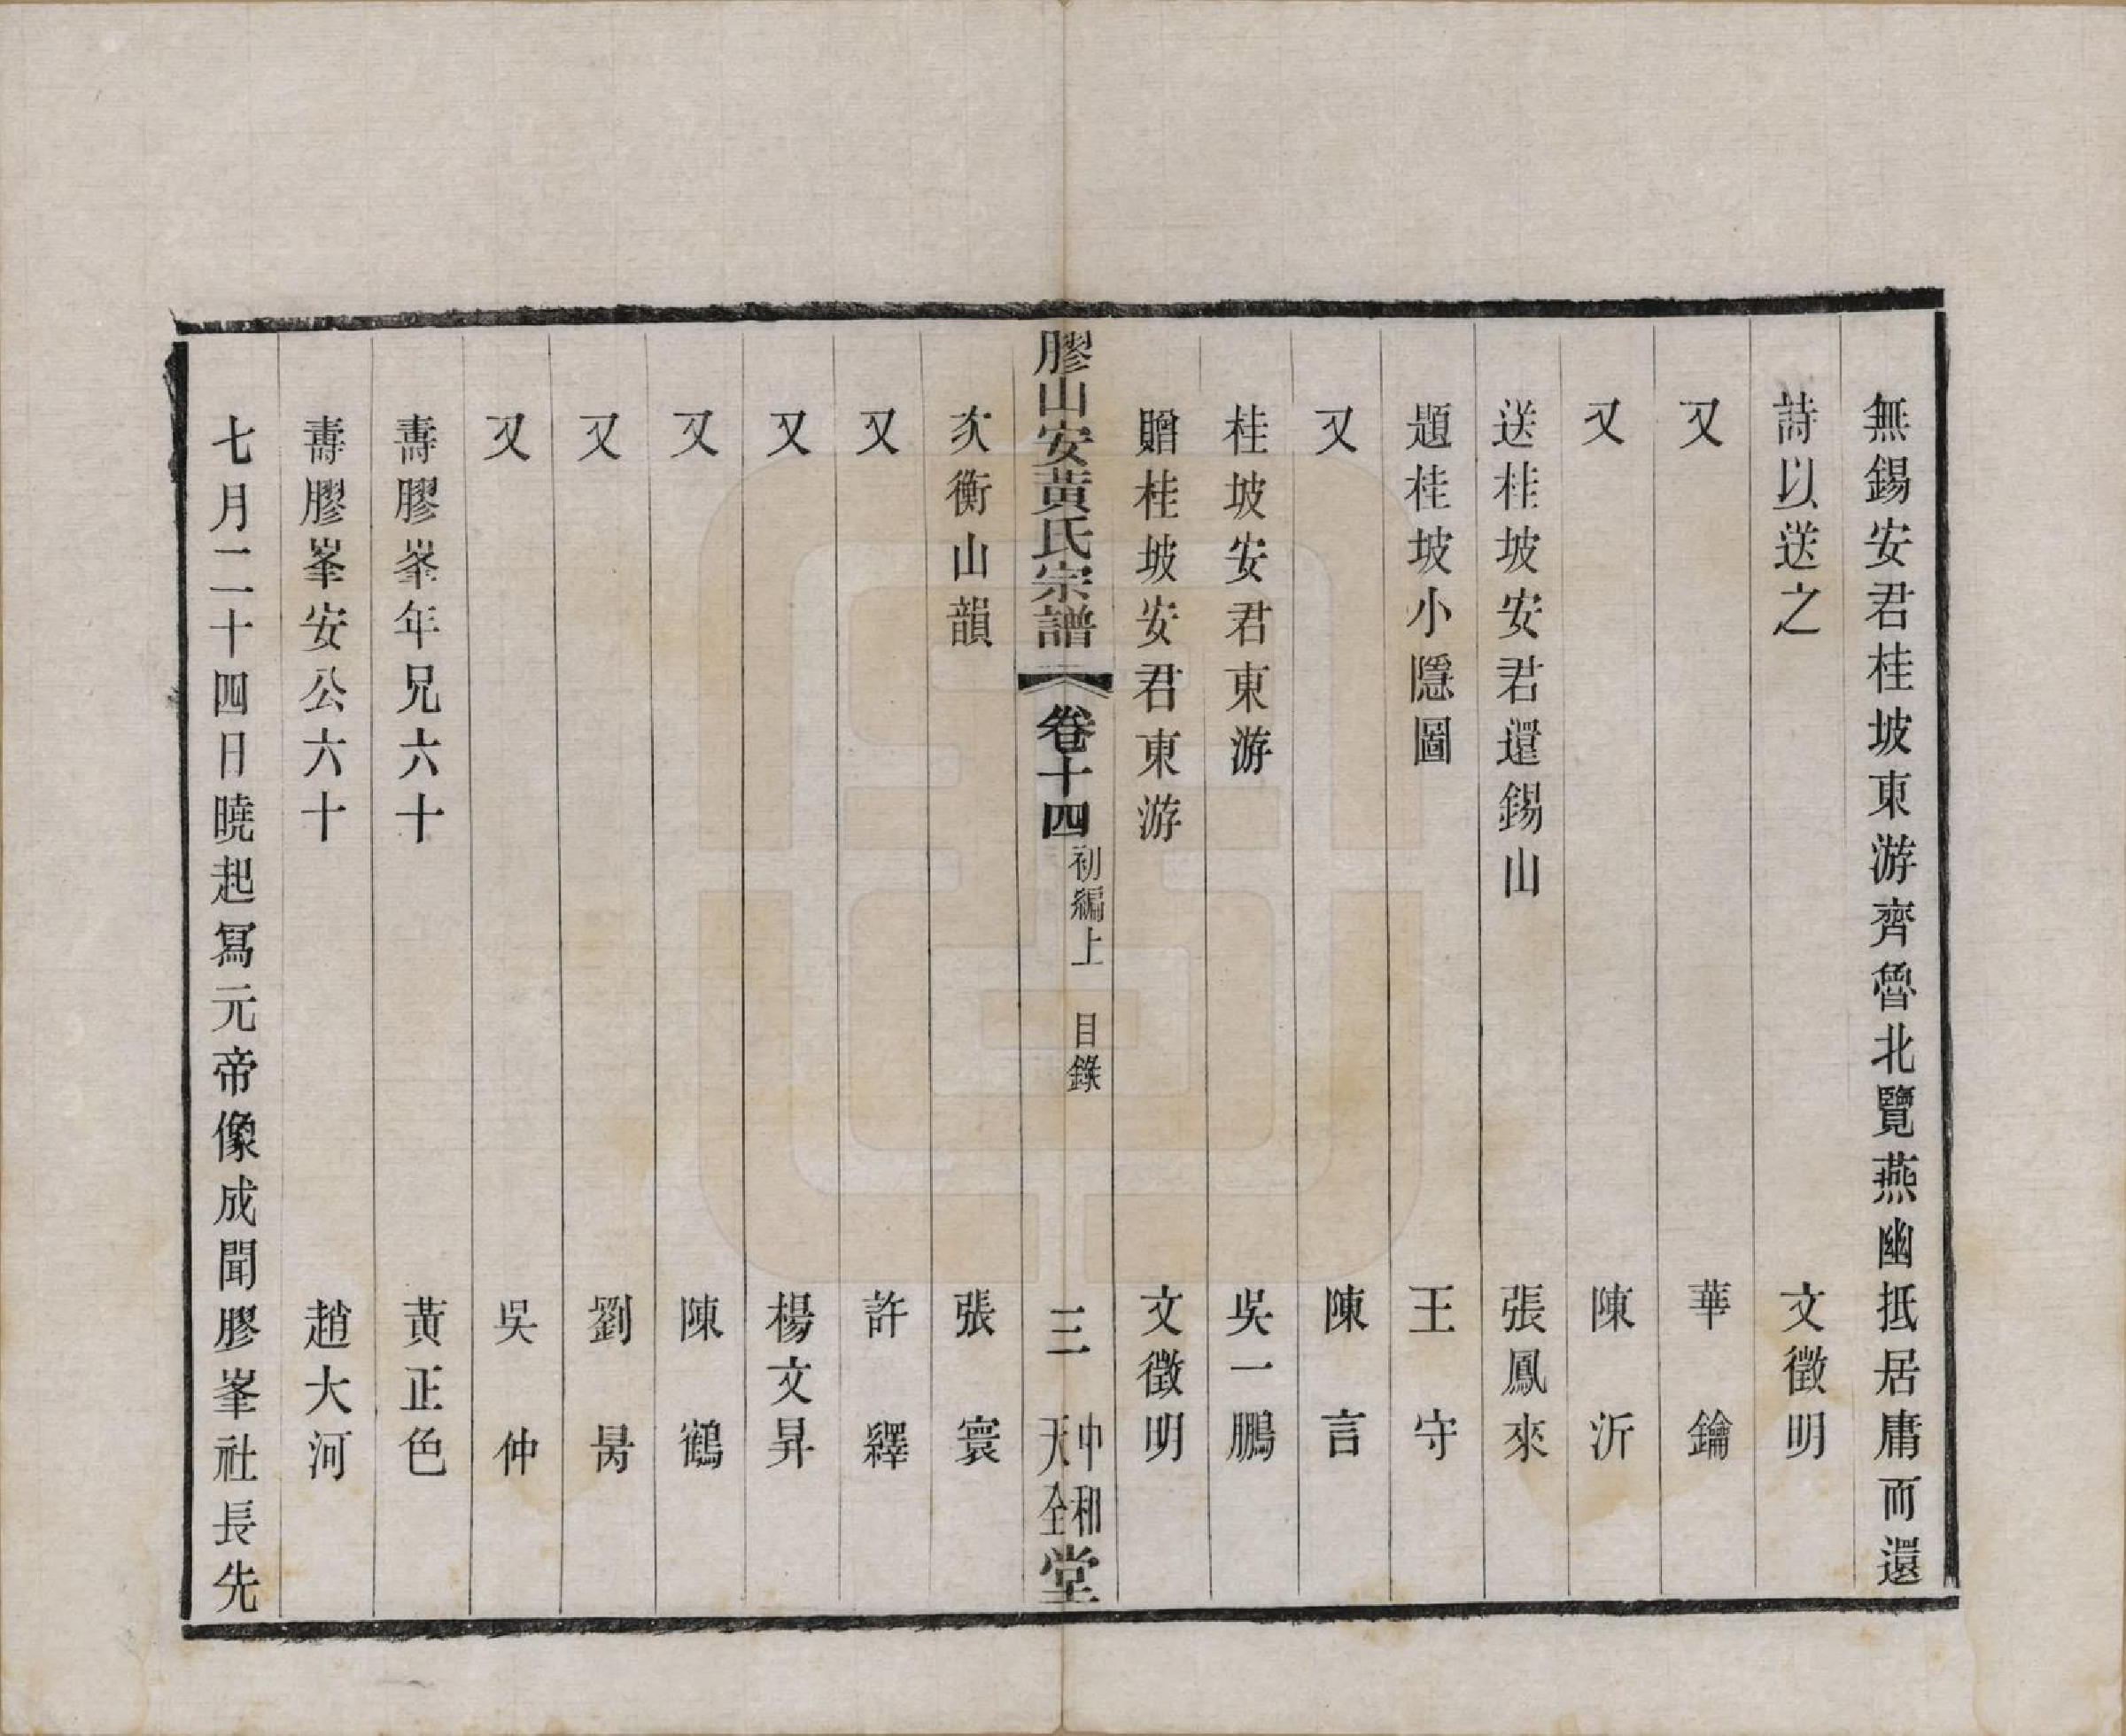 無錫安君桂坡東游齊魯北覽燕幽抵居庸而還
詩以送之　文徵明
又　華鑰
又　陳沂
送桂坡安君還錫山　張鳳來
題桂坡小隱圖　王守
又　陳言
桂坡安君東游　吳一鵬
贈桂坡安君東游　文徵明
膠山安黃氏宗譜　卷十四　初編上　目錄　三　中和天全堂
次衡山韻　張寰
又　許繹
又　楊文昇
又　陳鶴
又　劉昺
又　吳仲
壽膠峯年兄六十　黃正色
壽膠峯安公六十　趙大河
七月二十四日曉起寫元帝像成聞膠峯社長先